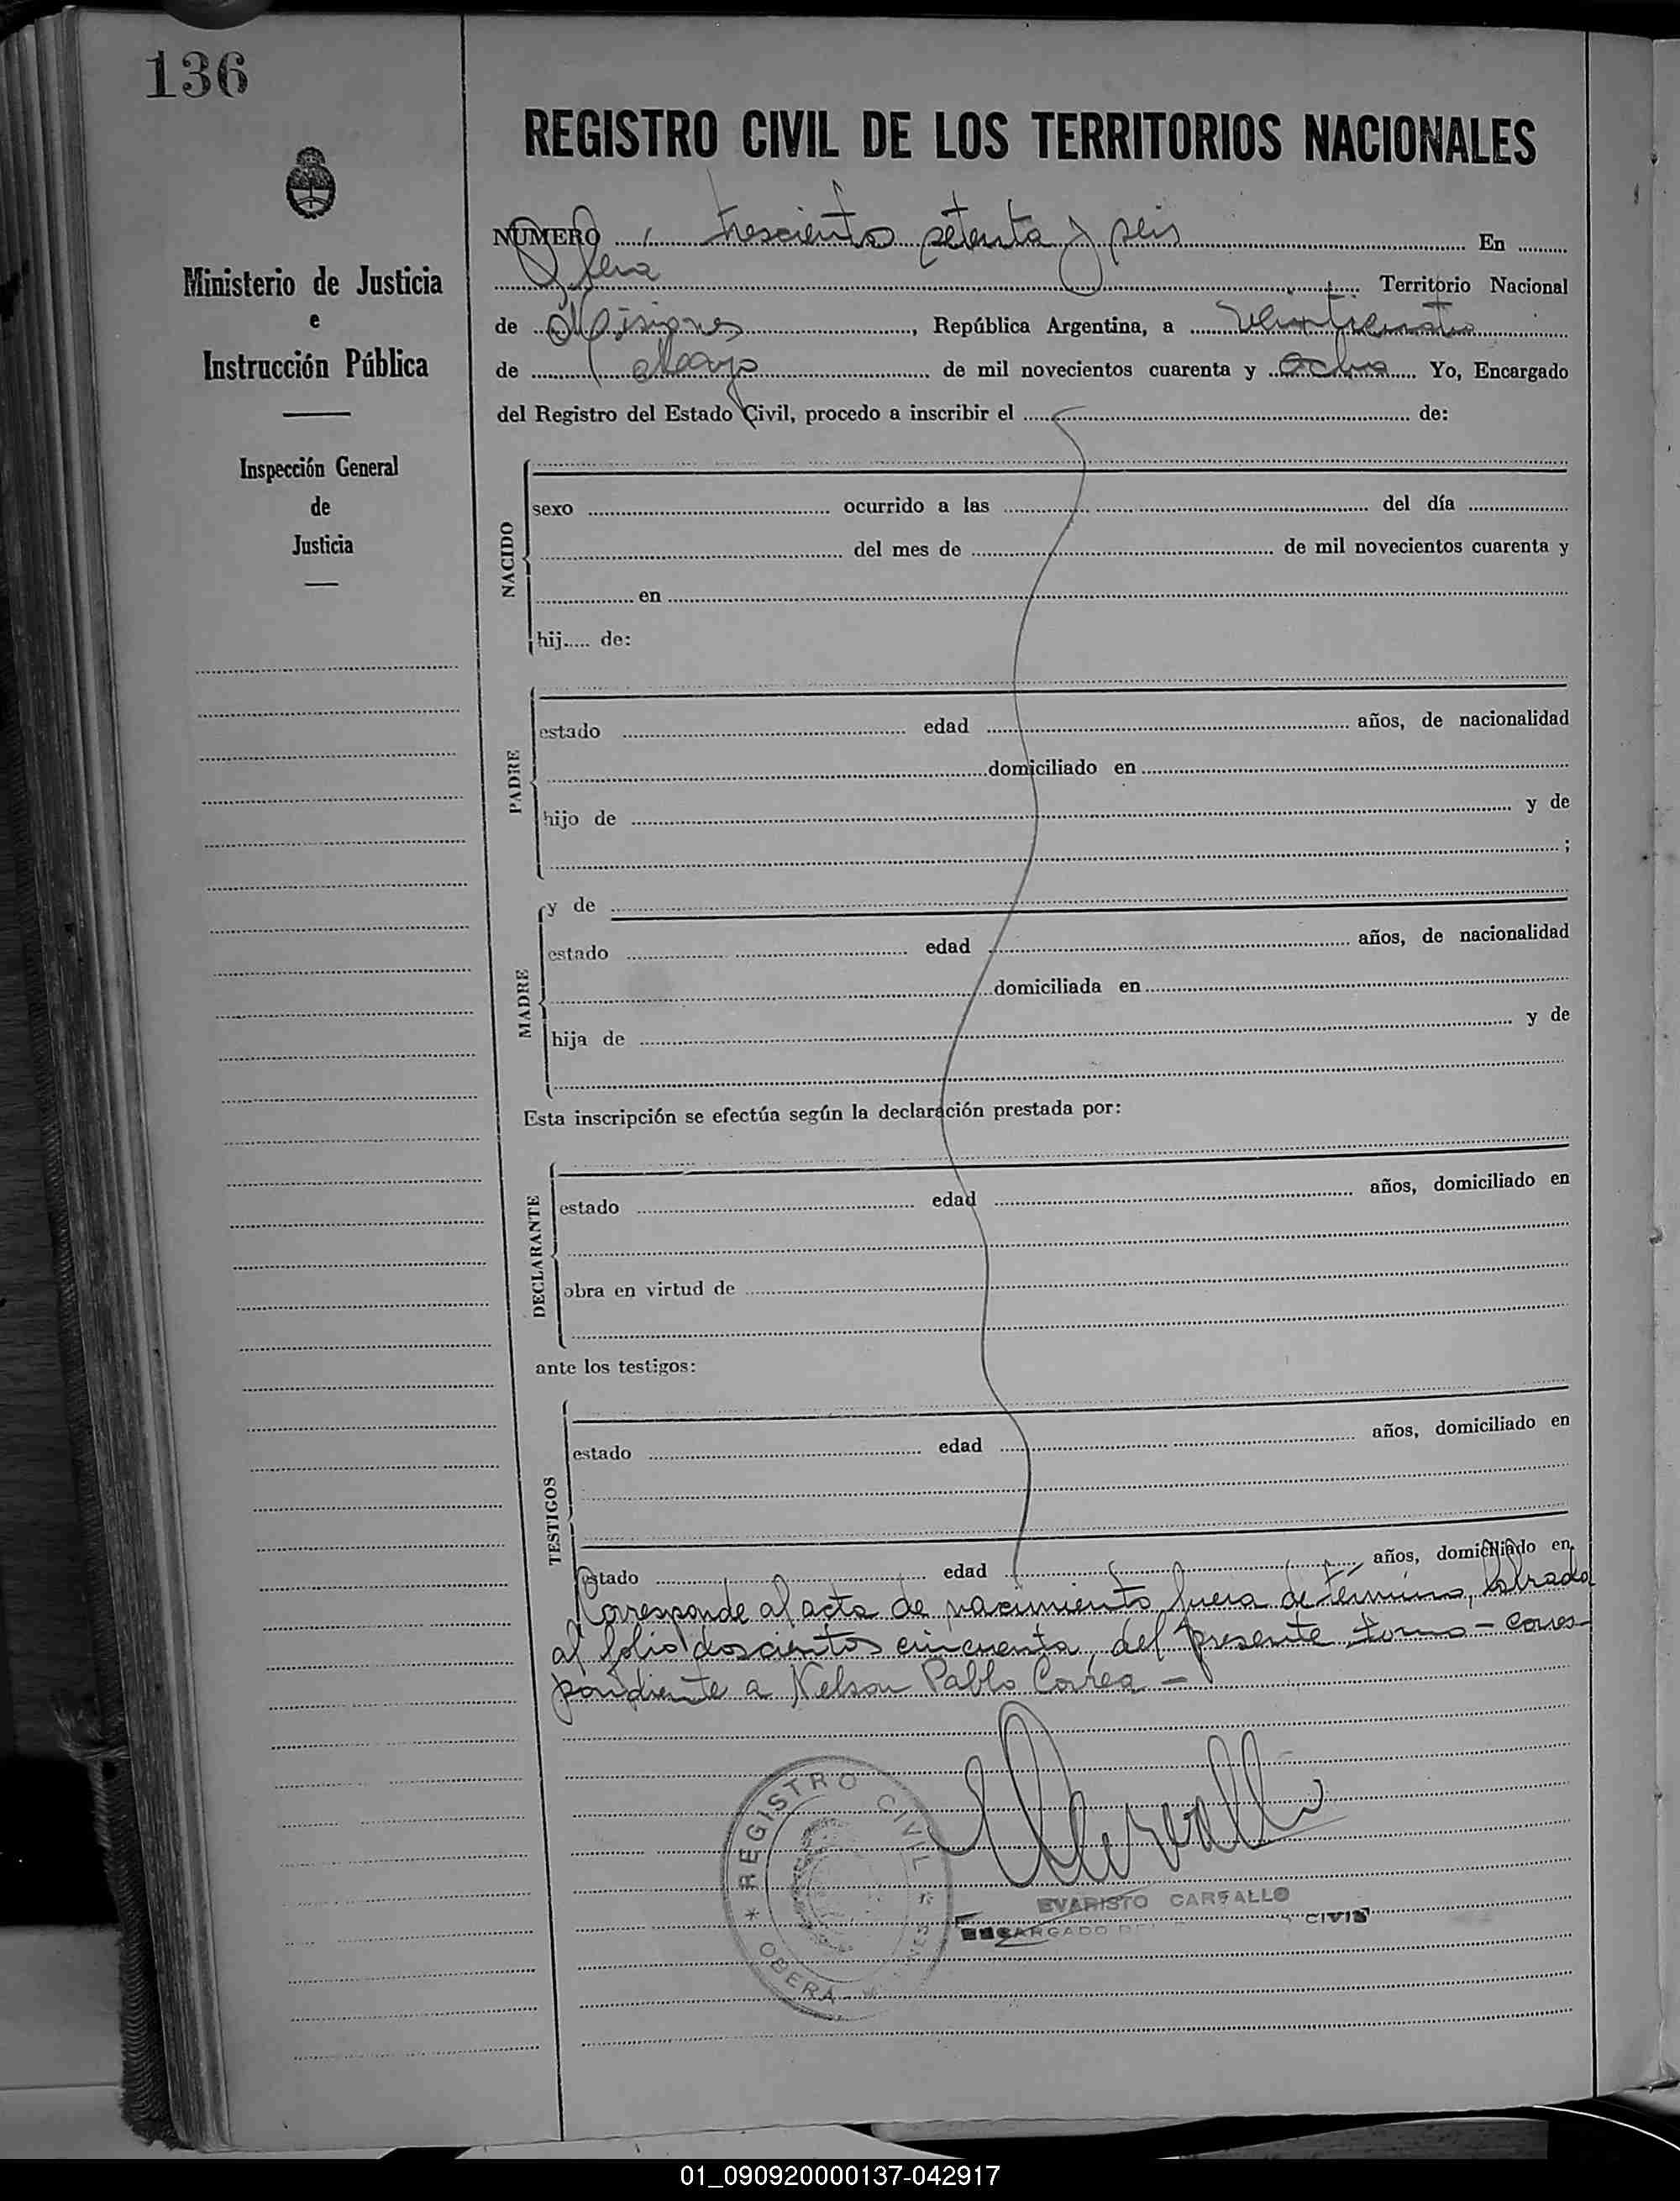 136
REGISTRO CIVIL DE LOS TERRITORIOS NACIONALES
Ministerio de Justicia
e
Instrucción Pública
Inspección General
de
Justicia
NUMERO trescientos setenta y seis En
Oberá Territorio Nacional
de Misiones, República Argentina, a veinticuatro
de Mayo de mil novecientos cuarenta y ocho Yo, Encargado
del Registro del Estado Civil, procedo a inscribir el de:
NACIDO
sexo ocurrido a las del día
del mes de de mil novecientos cuarenta y
en
hij..... de:
PADRE
estado edad años, de nacionalidad
domiciliado en
hijo de y de
;
MADRE
y de
estado edad años, de nacionalidad
domiciliada en
hija de y de
Esta inscripción se efectúa según la declaración prestada por:
DECLARANTE
estado edad años, domiciliado en
obra en virtud de
ante los testigos:
TESTIGOS
estado edad años, domiciliado en
estado edad años, domiciliado en
Corresponde al acta de nacimiento fuera de término, labrada
al folio doscientos cincuenta, del presente tomo - corres-
pondiente a Nelson Pablo Correa -
REGISTRO CIVIL
OBERÁ
EVARISTO CARVALLO
ENCARGADO DEL CIVIL
01_090920000137-042917